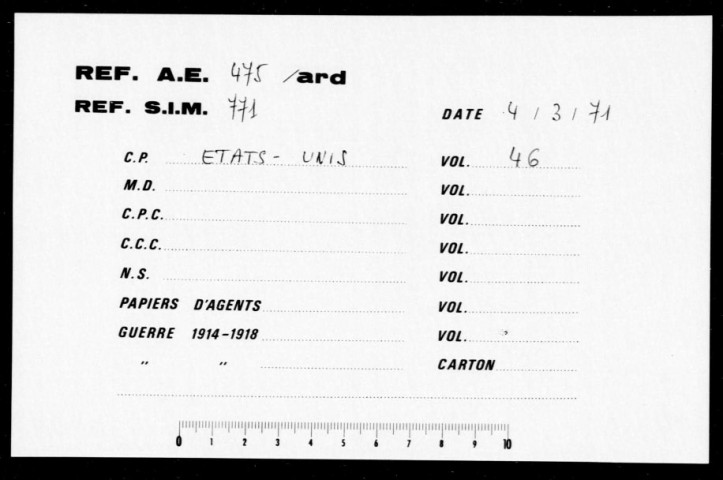 REF. A.E. 475 /ard
REF. S.I.M. 771
DATE 4 / 3 / 71
C.P. ETATS - UNIS VOL. 46
M.D. VOL.
C.P.C. VOL.
C.C.C. VOL.
N.S. VOL.
PAPIERS D'AGENTS VOL.
GUERRE 1914-1918 VOL.
" " CARTON
0 1 2 3 4 5 6 7 8 9 10